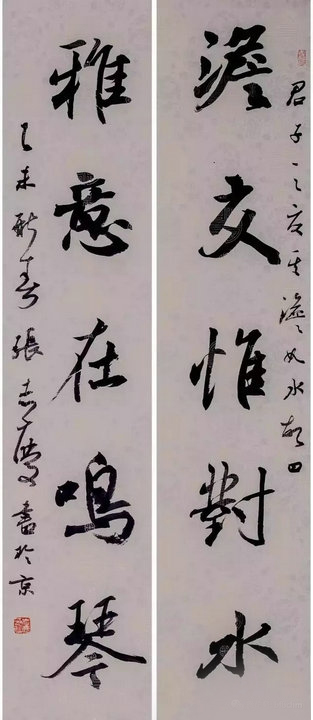 君子之交其澹如水故曰
澹交惟對水
雅意在鳴琴
乙未新春張志慶書於京